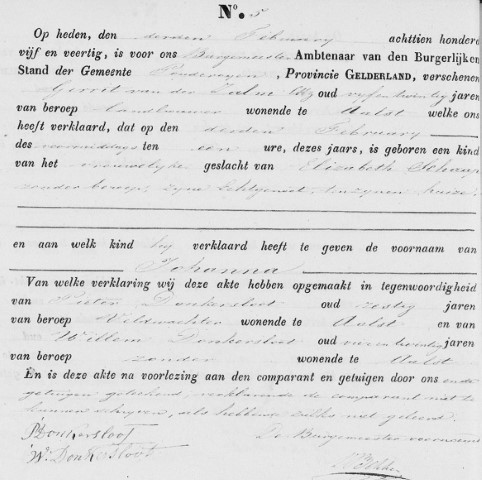 N°. 5
Op heden, den derden February achttien honderd
vijf en veertig, is voor ons Burgemeester Ambtenaar van den Burgerlijken
Stand der Gemeente Poederoyen, Provincie GELDERLAND, verschenen
Gerrit van der Zalm oud vyfentwintig jaren
van beroep Landbouwer wonende te Aalst welke ons
heeft verklaard, dat op den derden February
des voormiddags ten een ure, dezes jaars, is geboren een kind
van het vrouwelyke geslacht van Elizabeth Schaap
zonder beroep, zyne Echtgenoot, ten zynen huize
en aan welk kind hy verklaard heeft te geven de voornaam van
Johanna
Van welke verklaring wij deze akte hebben opgemaakt in tegenwoordigheid
van Pieter Donkersloot oud zestig jaren
van beroep Veldwachter wonende te Aalst en van
Willem Donkersloot oud jaren
van beroep zonder wonende te Aalst
En is deze akte na voorlezing aan den comparant en getuigen door ons en de
getuigen geteekend, verklarende de comparant niet te
kunnen schryven, als hebbende zulks niet geleerd.
P Donkersloot De Burgemeester voornoemd
W. Donkersloot